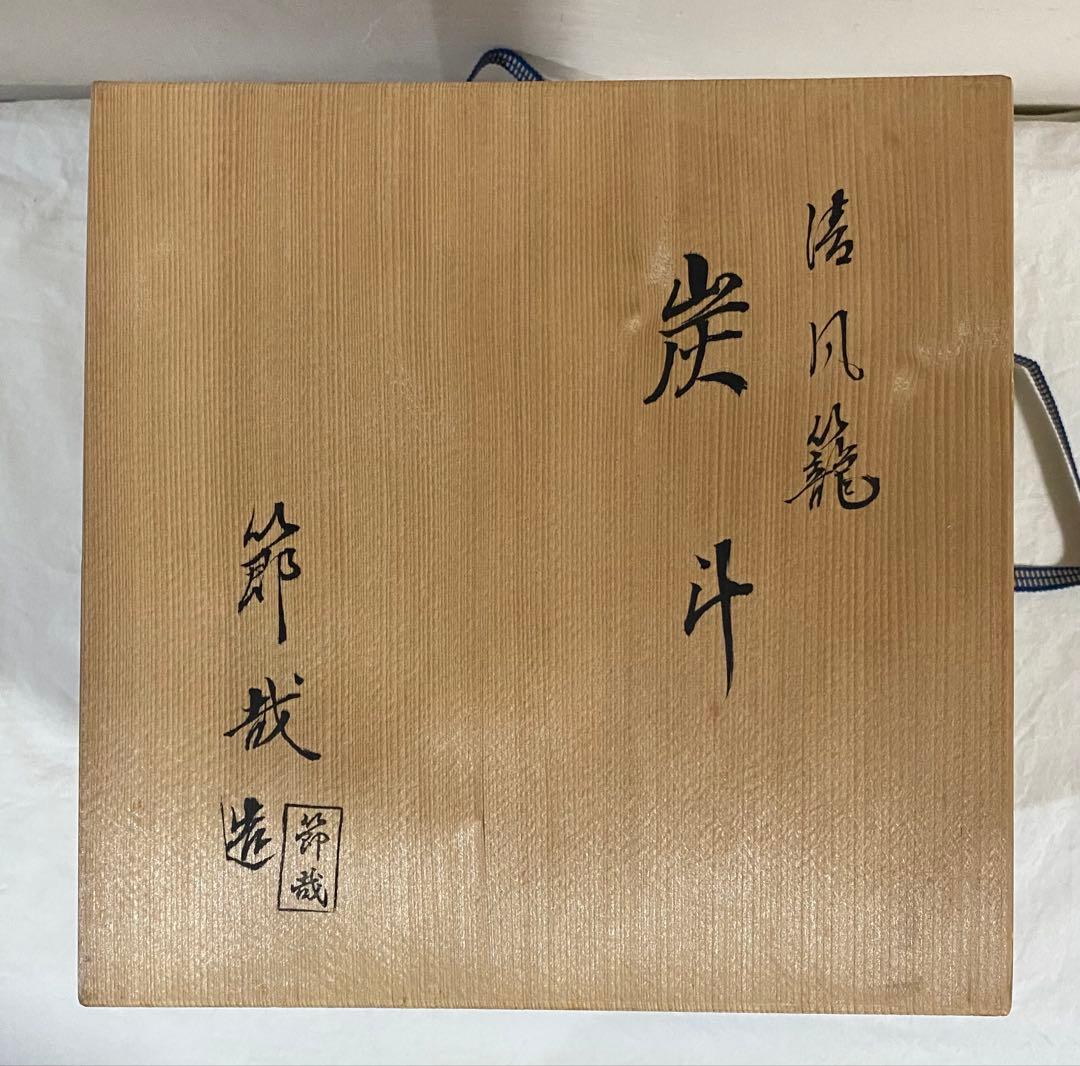 清風籠
炭斗
節哉
造
節哉